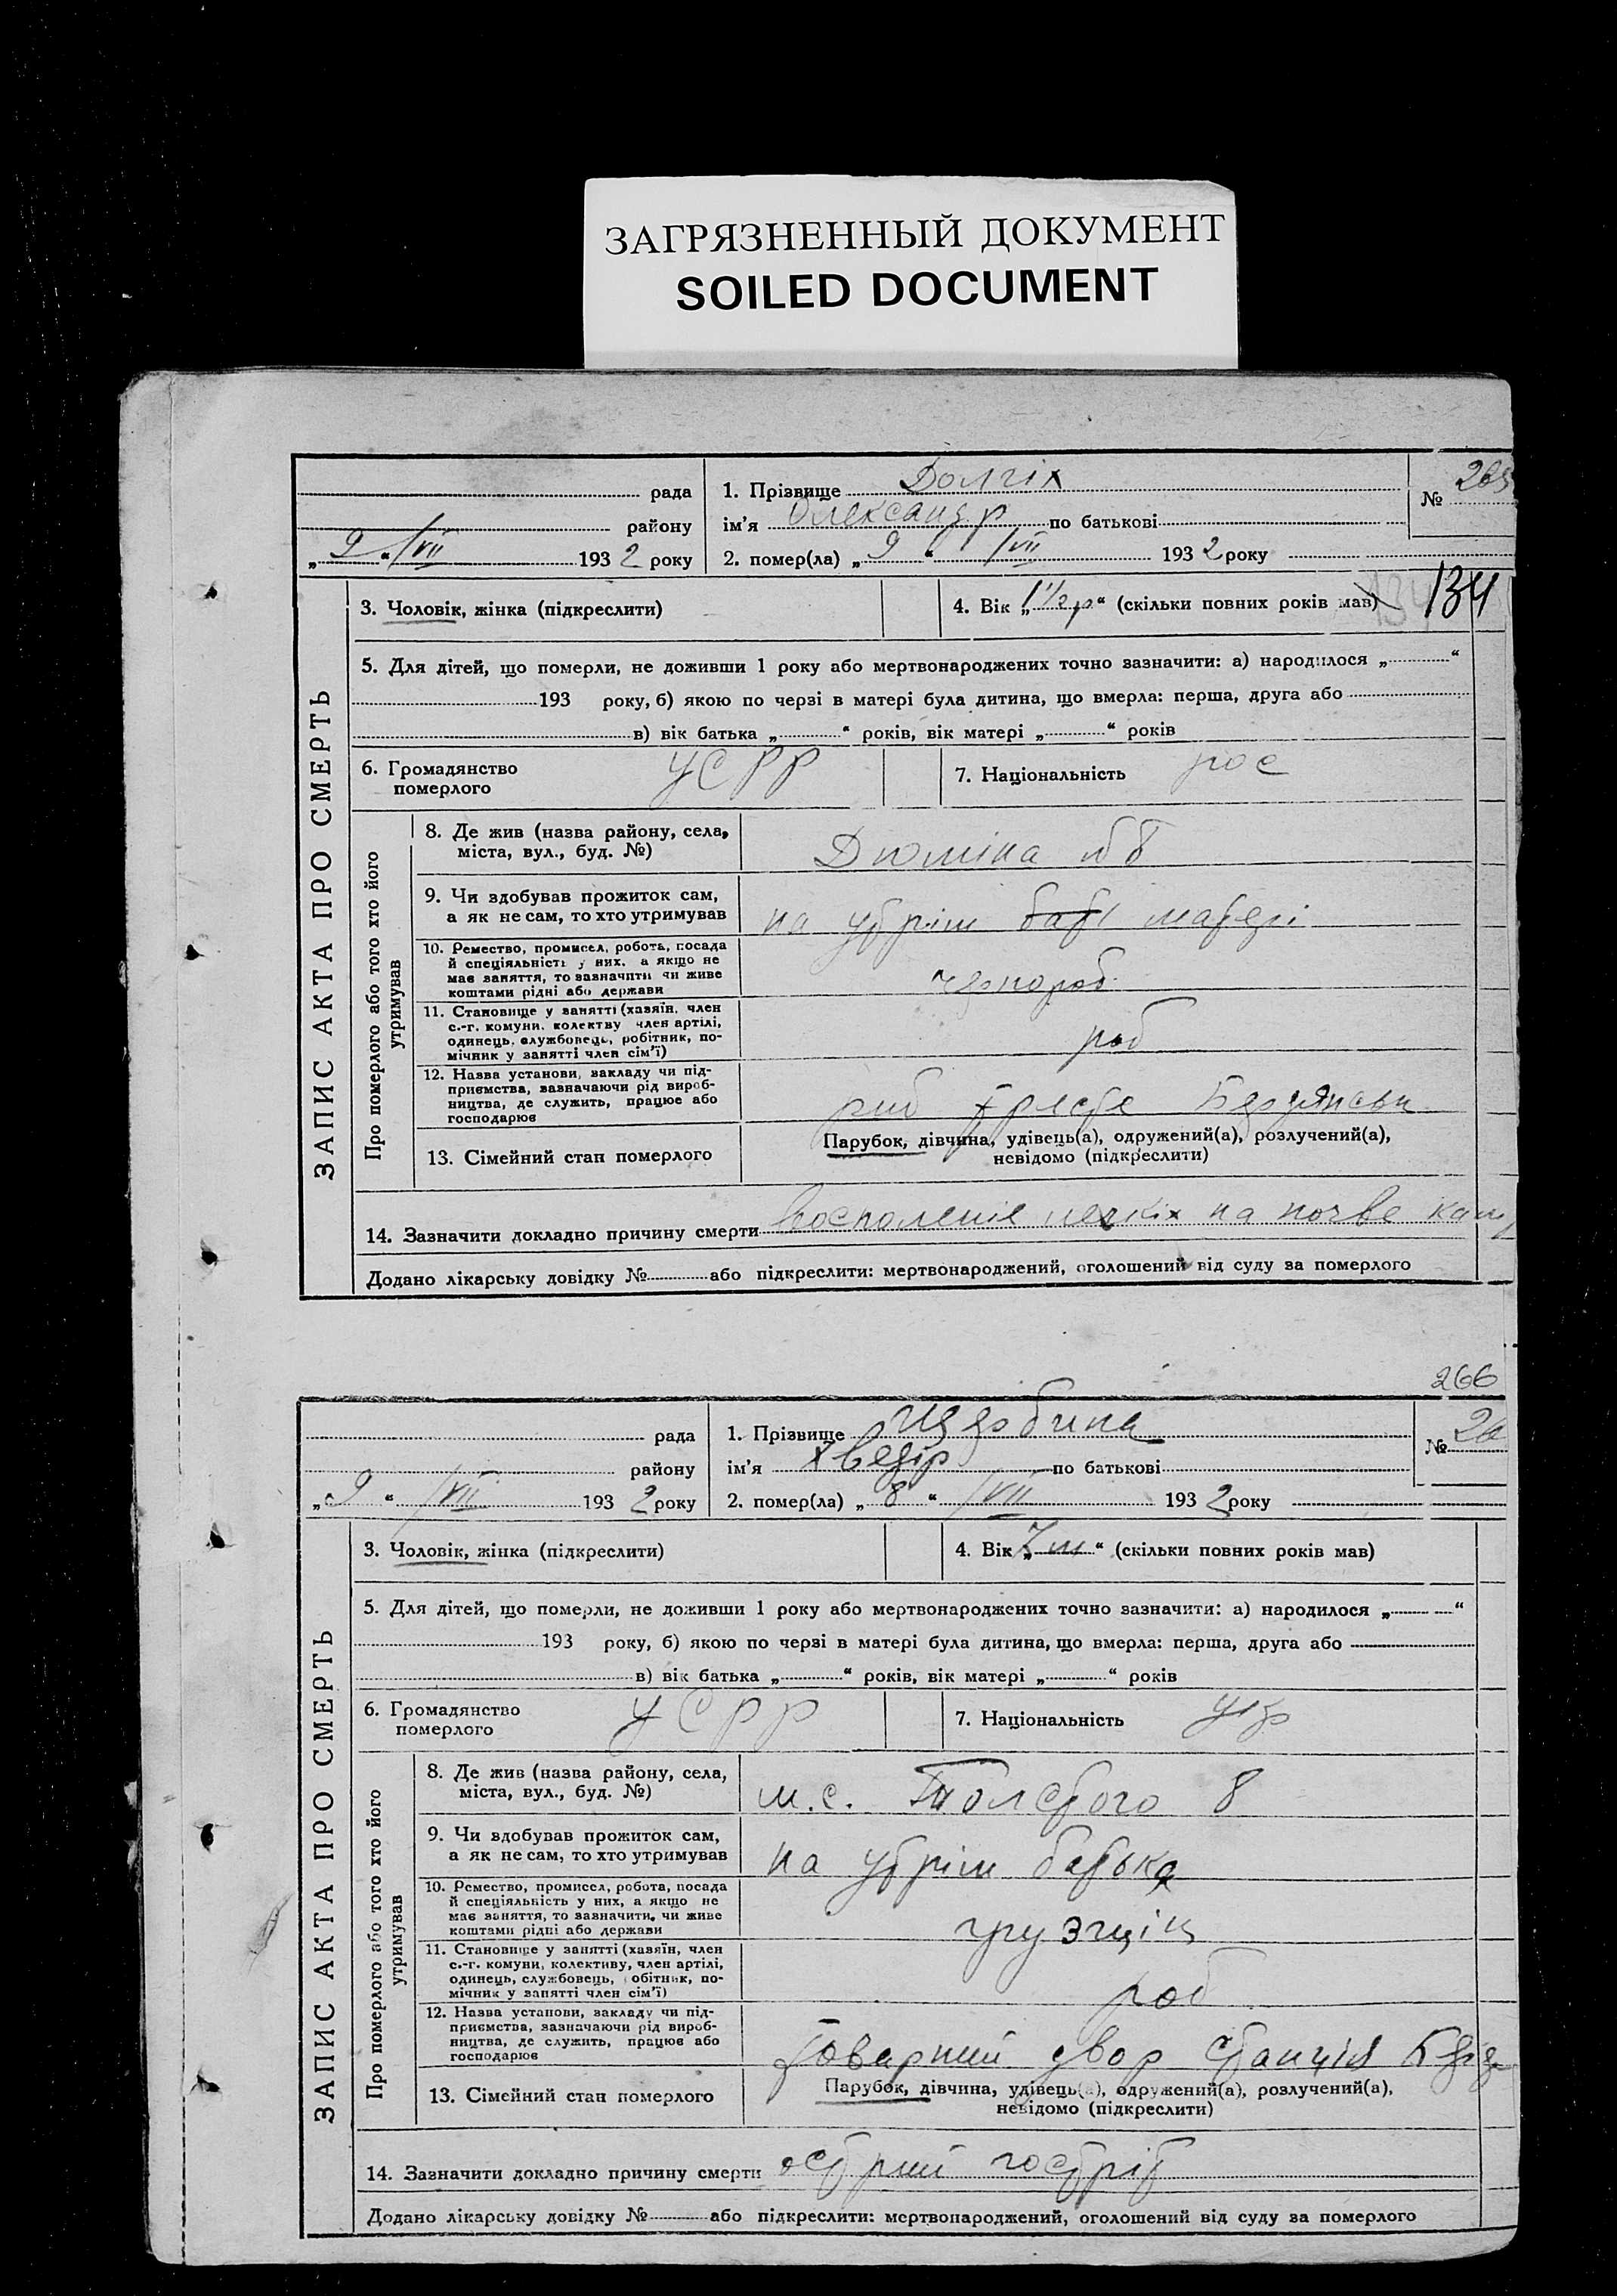 ЗАГРЯЗНЕННЫЙ ДОКУМЕНТ
SOILED DOCUMENT
ЗАПИС АКТА ПРО СМЕРТЬ
рада
району
„ 9 “ /VII 1932 року
1. Прізвище Долгіх
ім'я Олександр по батькові
2. помер(ла) „ 9 “ /VII 1932 року
№ 265
3. Чоловік, жінка (підкреслити)
4. Вік „ 1 1/2 р “ (скільки повних років мав) 134
5. Для дітей, що померли, не доживши 1 року або мертвонароджених точно зазначити: а) народилося „ “
193 року, б) якою по черзі в матері була дитина, що вмерла: перша, друга або
в) вік батька „ “ років, вік матері „ “ років
6. Громадянство
померлого
УСРР
7. Національність рос
Про померлого або того хто його
утримував
8. Де жив (назва району, села,
міста, вул., буд. №)
Дюміна №8
9. Чи здобував прожиток сам,
а як не сам, то хто утримував
на утрім баті матері
10. Ремество, промисел, робота, посада
й спеціяльність у них, а якщо не
має заняття, то зазначити чи живе
коштами рідні або держави
чорнороб
11. Становище у занятті (хазяїн, член
с.-г. комуни, колектву член артілі,
одинець, службовець, робітник, по-
мічник у занятті член сім'ї)
роб
12. Назва установи, закладу чи під-
приємства, зазначаючи рід вироб-
ництва, де служить, працює або
господарює
риб тресте Бердянськ
13. Сімейний стан померлого
Парубок, дівчина, удівець(а), одружений(а), розлучений(а),
невідомо (підкреслити)
14. Зазначити докладно причину смерти восполеніє легкіх на почве
Додано лікарську довідку № або підкреслити: мертвонароджений, оголошений від суду за померлого
266
ЗАПИС АКТА ПРО СМЕРТЬ
рада
району
„ 9 “ /VII 1932 року
1. Прізвище Щербина
ім'я Хведір по батькові
2. помер(ла) „ 8 “ /VII 1932 року
№ 26
3. Чоловік, жінка (підкреслити)
4. Вік „ 7 м “ (скільки повних років мав)
5. Для дітей, що померли, не доживши 1 року або мертвонароджених точно зазначити: а) народилося „ “
193 року, б) якою по черзі в матері була дитина, що вмерла: перша, друга або
в) вік батька „ “ років, вік матері „ “ років
6. Громадянство
померлого
УСРР
7. Національність укр
Про померлого або того хто його
утримував
8. Де жив (назва району, села,
міста, вул., буд. №)
м.с. Толстого 8
9. Чи здобував прожиток сам,
а як не сам, то хто утримував
на утрім батька
10. Ремество, промисел, робота, посада
й спеціяльність у них, а якщо не
має заняття, то зазначити, чи живе
коштами рідні або держави
грузщік
11. Становище у занятті (хазяїн, член
с.-г. комуни, колективу, член артілі,
одинець, службовець, робітник, по-
мічник у занятті член сім'ї)
роб
12. Назва установи, закладу чи під-
приємства, зазначаючи рід вироб-
ництва, де служить, працює або
господарює
Товарний двор станція
13. Сімейний стан померлого
Парубок, дівчина, удівець(а), одружений(а), розлучений(а),
невідомо (підкреслити)
14. Зазначити докладно причину смерти острий гострит
Додано лікарську довідку № або підкреслити: мертвонароджений, оголошений від суду за померлого